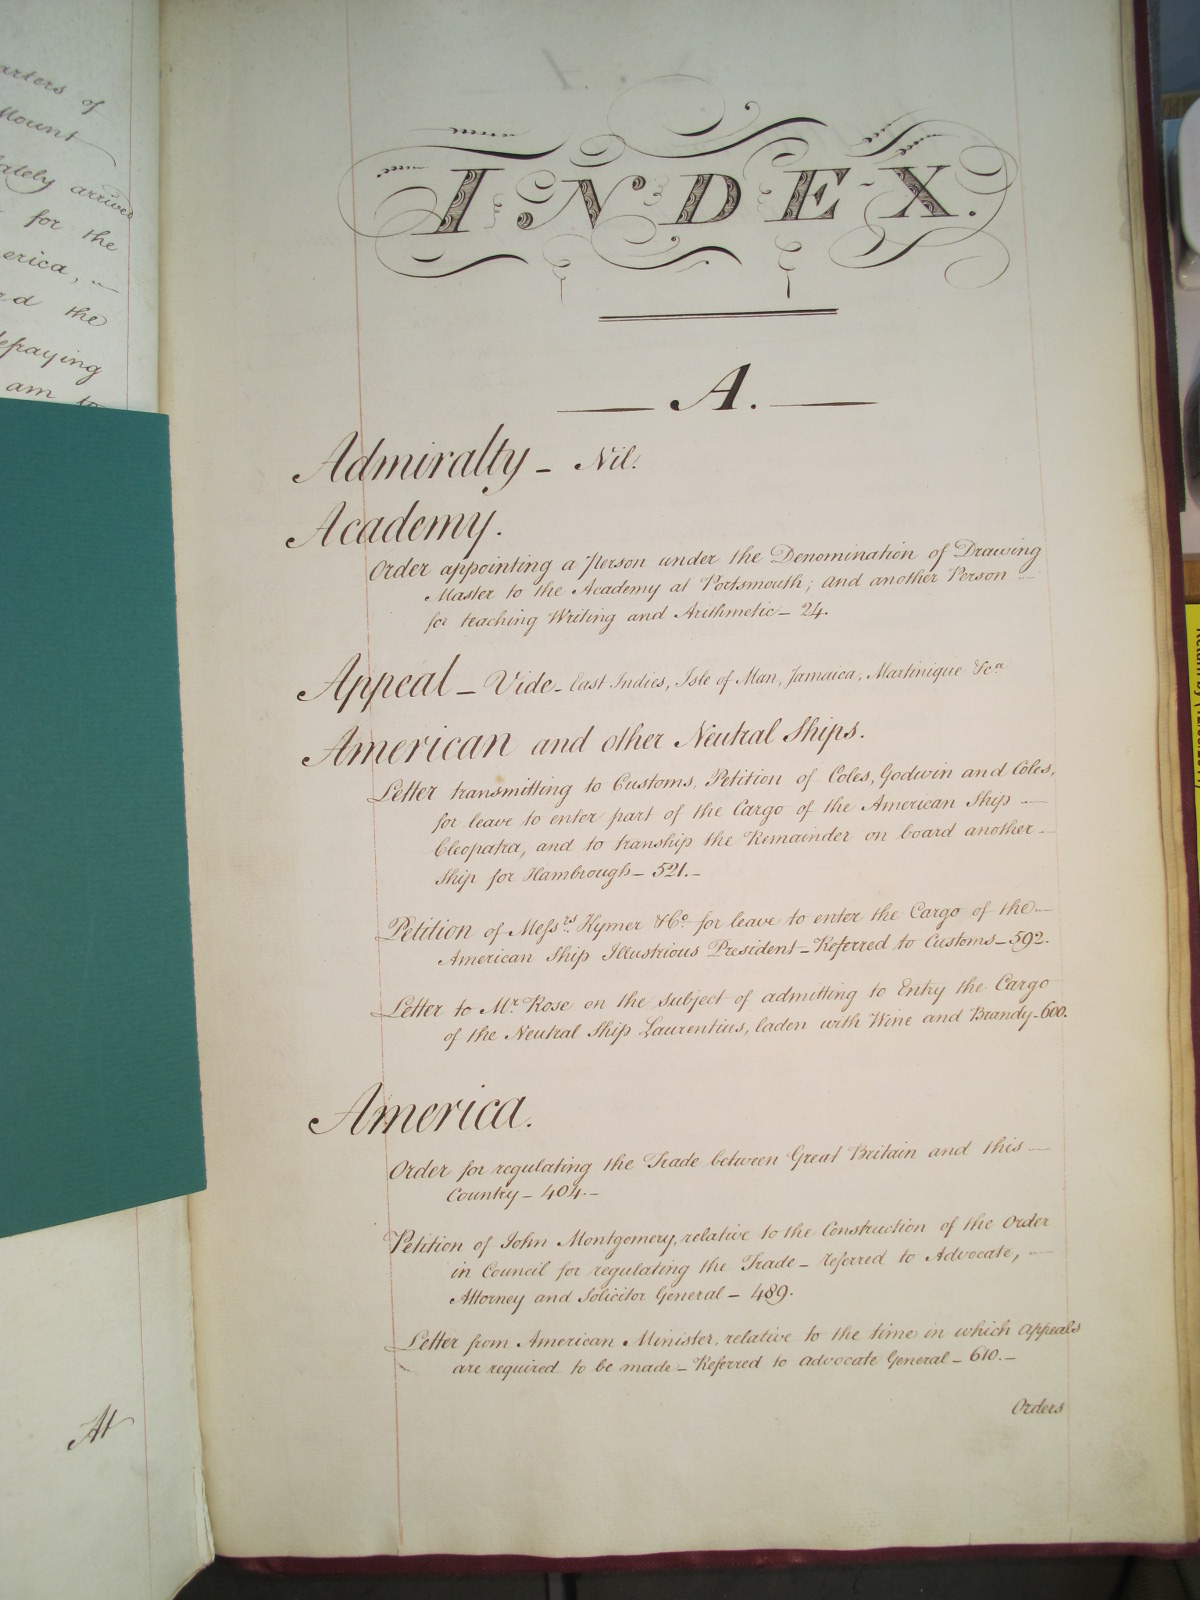 arters of
Mount
lately arrived
for the
erica,
d the
defraying
am to
At
INDEX.
A.
Admiralty – Nil.
Academy.
Order appointing a Person under the Denomination of Drawing
Master to the Academy at Portsmouth; and another Person –
for teaching Writing and Arithmetic – 24.
Appeal – Vide – East Indies, Isle of Man, Jamaica, Martinique &ca
American and other Neutral Ships.
Letter transmitting to Customs, Petition of Coles, Godwin and Coles,
for leave to enter part of the Cargo of the American Ship –
Cleopatra, and to tranship the Remainder on board another –
Ship for Hambrough – 521. –
Petition of Messrs. Hymer &Co. for leave to enter the Cargo of the –
American Ship Illustrious President – Referred to Customs – 592.
Letter to Mr. Rose on the subject of admitting to Entry the Cargo
of the Neutral Ship Laurentius, laden with Wine and Brandy – 600.
America.
Order for regulating the Trade between Great Britain and this –
Country – 404. –
Petition of John Montgomery, relative to the Construction of the Order
in Council for regulating the Trade – referred to Advocate, –
Attorney and Solicitor General – 489.
Letter from American Minister, relative to the time in which Appeals
are required to be made – Referred to Advocate General – 610. –
Orders